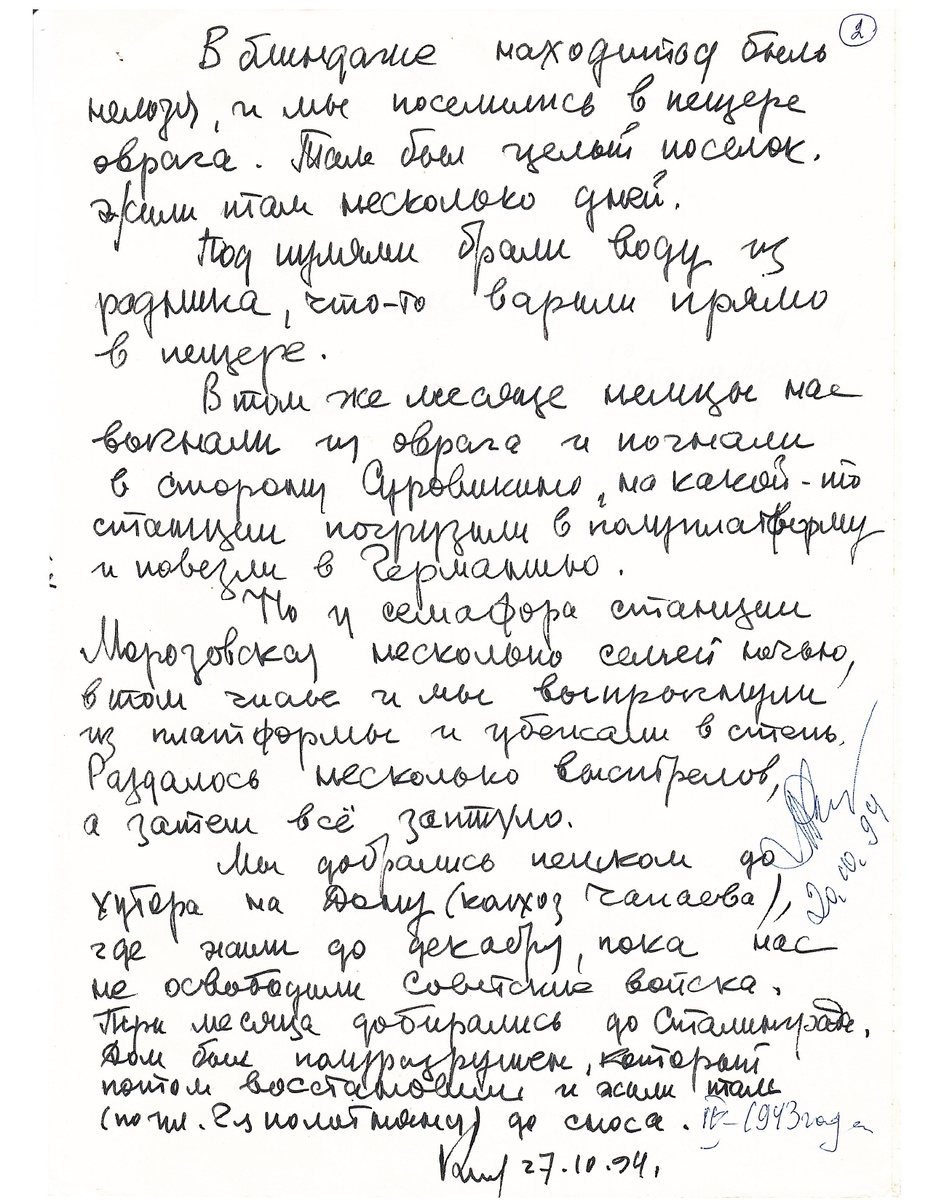 2
В блиндаже находиться было
нельзя, и мы поселились в пещере
оврага. Там был целый поселок.
Жили там несколько дней.
Под пулями брали воду из
родника, что-то варили прямо
в пещере.
В том же месяце немцы нас
выгнали из оврага и погнали
в сторону Суровикино, на какой-то
станции погрузили в полуплатформу
и повезли в Германию.
Но у семафора станции
Морозовская несколько семей ночью,
в том числе и мы выпрыгнули
из платформы и убежали в степь.
Раздалось несколько выстрелов,
а затем всё затихло.
Мы добрались пешком до
хутора на Дону (колхоз Чапаева),
где жили до декабря, пока нас
не освободили Советские войска.
Три месяца добирались до Сталинграда.
Дом был полуразрушен, который
потом восстановили и жили там
(по ул. ) до сноса. IV-1943 года
27.10.94.
20.10.94